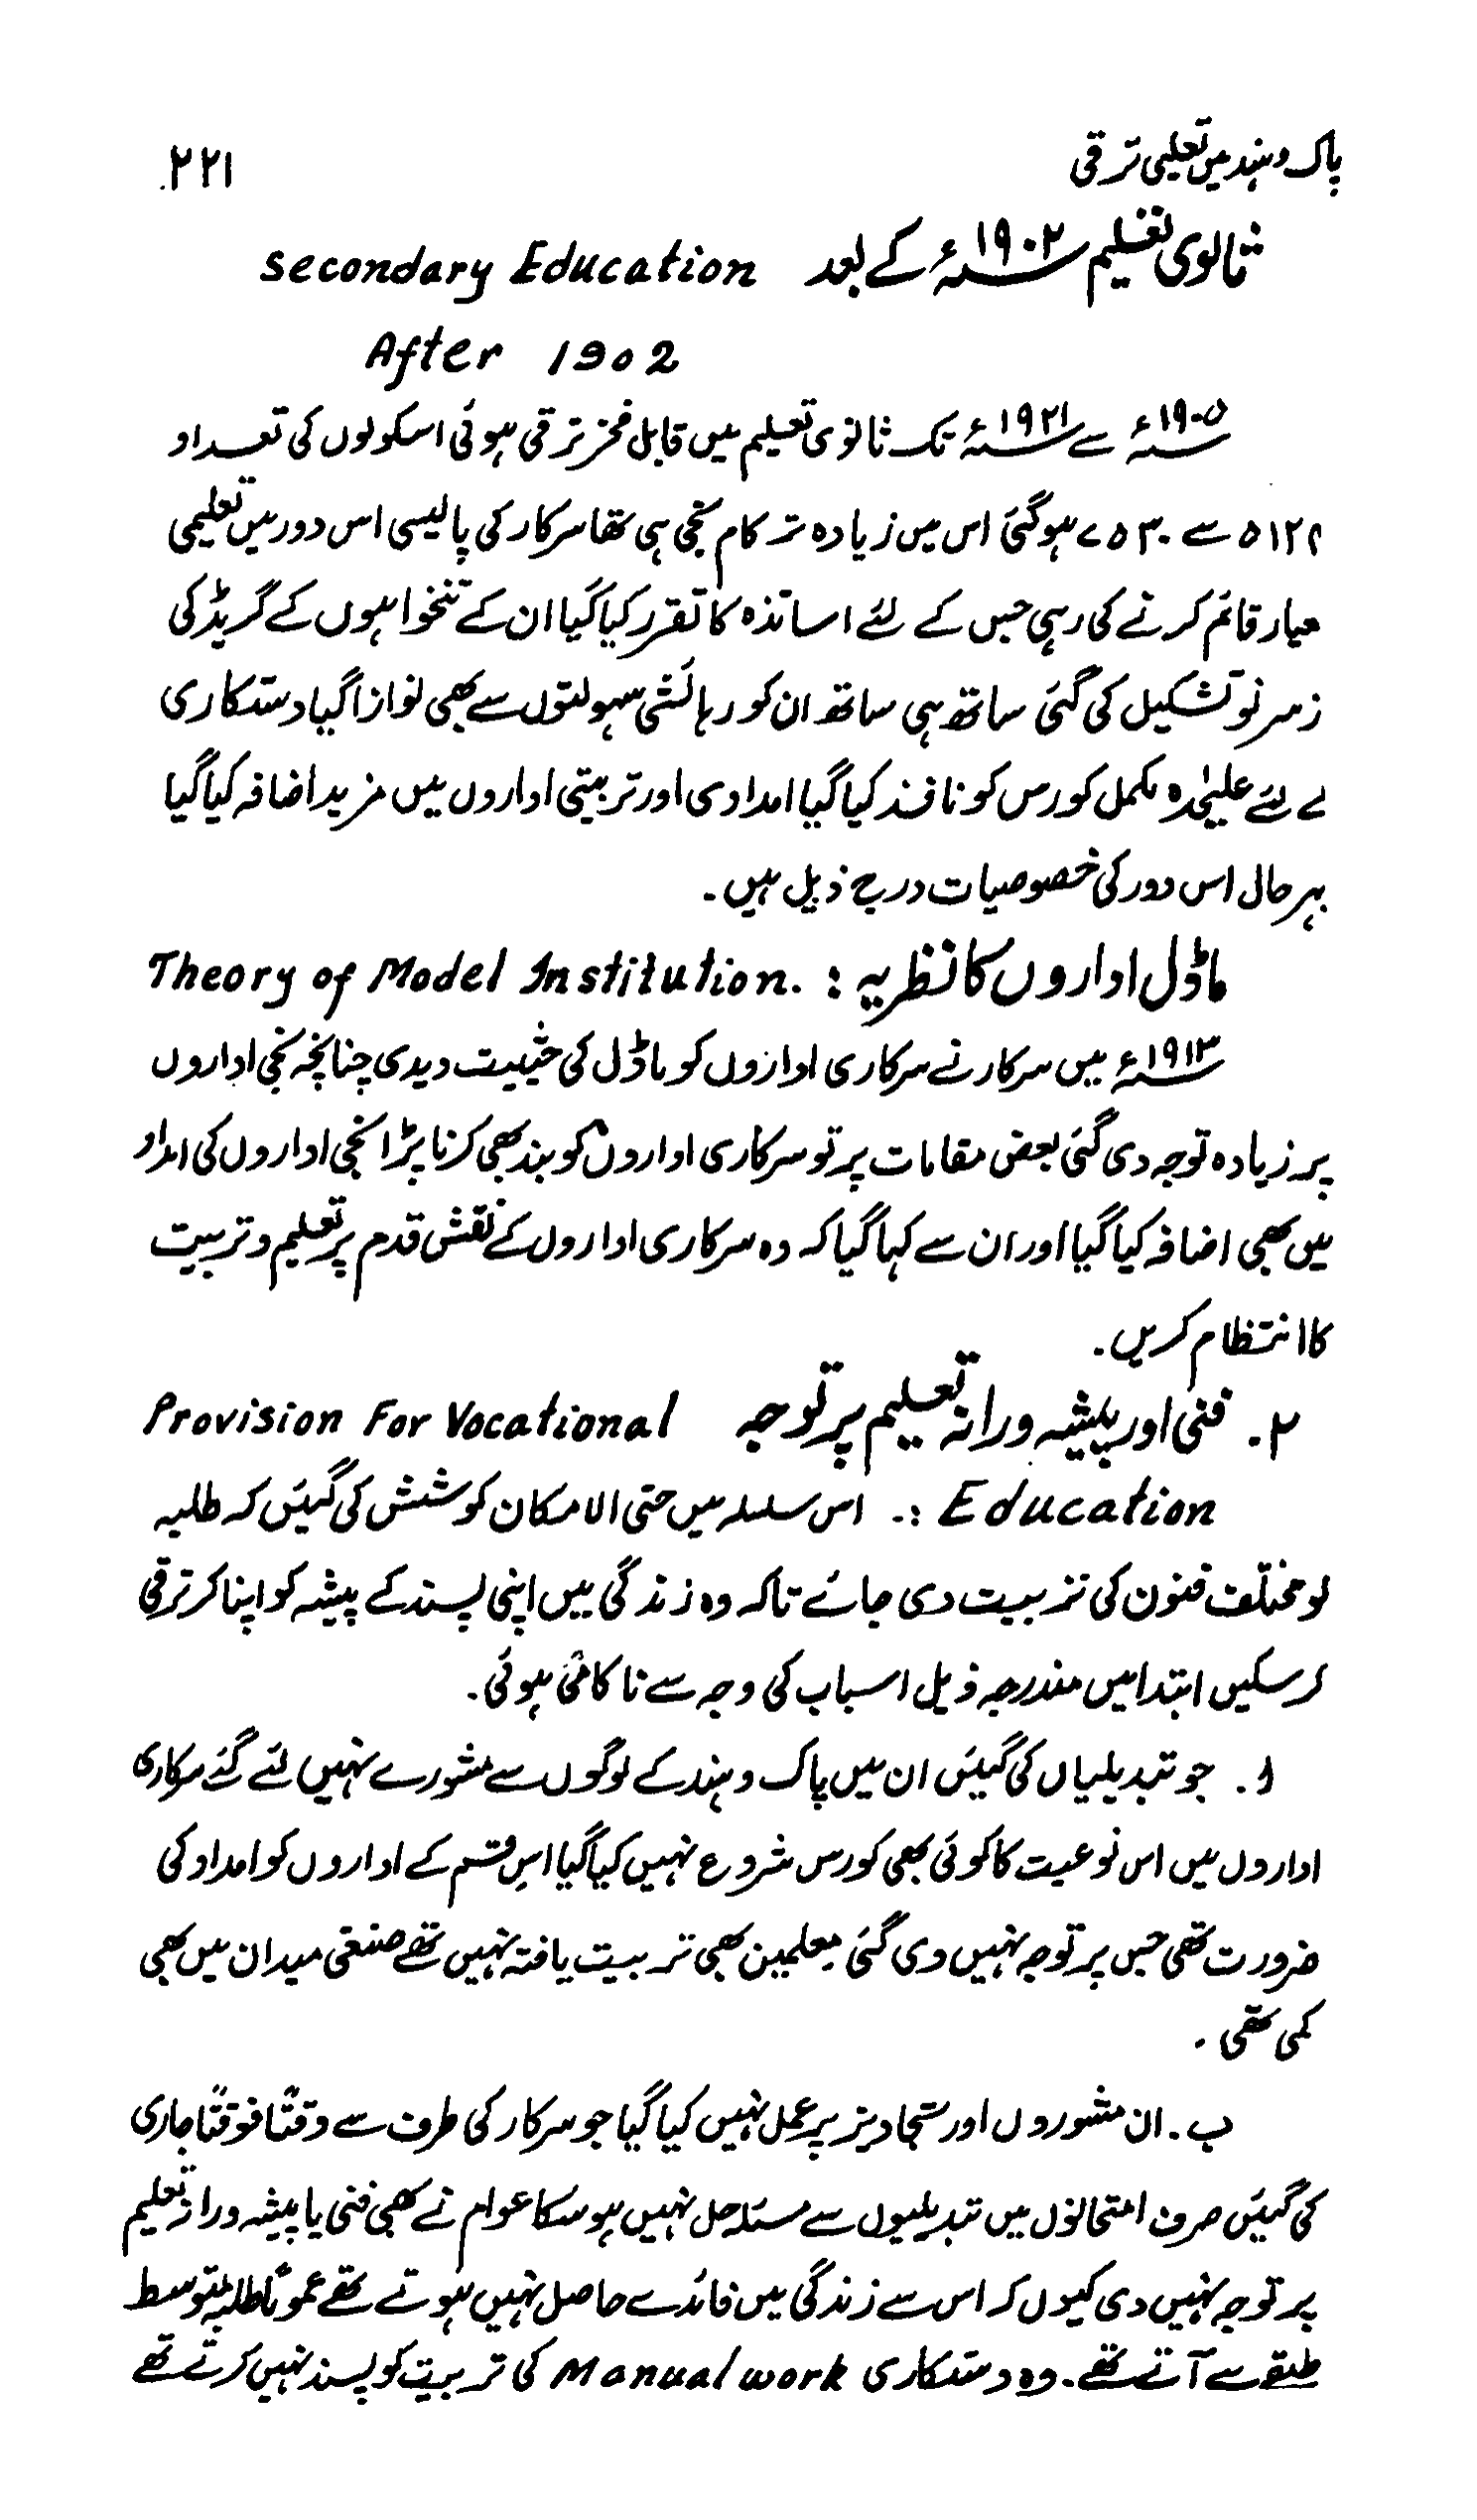 پاک و ہند میں تعلیمی ترقی ۲۲۱
ثانوی تعلیم ۱۹۰۲ء کے بعد Secondary Education
After 1902
۱۹۰۵ء سے ۱۹۲۱ء تک ثانوی تعلیم میں قابل فخر ترقی ہوئی اسکولوں کی تعداد
۵۱۲۴ سے ۷۵۳۰ ہوگئی اس میں زیادہ تر کام نجی ہی تھا سرکار کی پالیسی اس دور میں تعلیمی
میار قائم کرنے کی رہی جس کے لئے اساتذہ کا تقرر کیا گیا ان کے تنخواہوں کے گریڈ کی
زسرنو تشکیل کی گئی ساتھ ہی ساتھ ان کو رہائشی سہولتوں سے بھی نوازا گیا دستکاری
کے لئے علیٰحدہ مکمل کورس کو نافذ کیا گیا امدادی اور تربیتی اداروں میں مزید اضافہ کیا گیا
بہرحال اس دور کی خصوصیات درج ذیل ہیں۔
ماڈل اداروں کا نظریہ : Theory of Model Institution.
۱۹۱۳ء میں سرکار نے سرکاری اداروں کو ماڈل کی حیثیت دیدی چنانچہ نجی اداروں
پر زیادہ توجہ دی گئی بعض مقامات پر تو سرکاری اداروں کو بند بھی کرنا پڑا نجی اداروں کی امداد
میں بھی اضافہ کیا گیا اور ان سے کہا گیا کہ وہ سرکاری اداروں کے نقش قدم پر تعلیم و تربیت
کا انتظام کریں۔
۲. فنی اور پیشہ ورانہ تعلیم پر توجہ Provision For Vocational
Education :۔ اس سلسلہ میں حتی الامکان کوشش کی گیئں کہ طلبہ
کو مختلف فنون کی تربیت دی جائے تاکہ وہ زندگی میں اپنی پسند کے پیشہ کو اپنا کر ترقی
کرسکیں ابتدا میں مندرجہ ذیل اسباب کی وجہ سے ناکامی ہوئی۔
ا. جو تبدیلیاں کی گیئں ان میں پاک و ہند کے لوگوں سے مشورے نہیں لئے گئے سرکاری
اداروں میں اس نوعیت کا کوئی بھی کورس شروع نہیں کیا گیا اس قسم کے اداروں کو امداد کی
ضرورت تھی جس پر توجہ نہیں دی گئی معلمین بھی تربیت یافتہ نہیں تھے صنعتی میدان میں بھی
کمی تھی۔
ب. ان مشوروں اور تجاویز پر عمل نہیں کیا گیا جو سرکار کی طرف سے وقتًا فوقتًا جاری
کی گیئں صرف امتحانوں میں تبدیلیوں سے مسئلہ حل نہیں ہوسکا عوام نے بھی فنی یا پیشہ ورانہ تعلیم
پر توجہ نہیں دی کیوں کہ اس سے زندگی میں فائدے حاصل نہیں ہوتے تھے عمومًا طلبہ متوسط
طبقے سے آتے تھے۔ وہ دستکاری Manual work کی تربیت کو پسند نہیں کرتے تھے